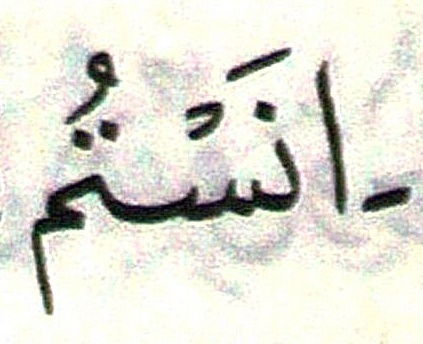 -انَسْتُم